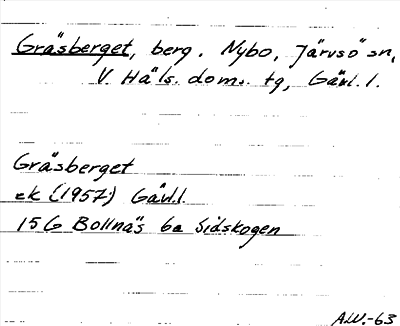 Gräsberget, berg. Nybo, Järvsö sn,
V. Häls. doms. tg, Gävl. l.
Gräsberget
ek (1957) Gävl.l.
15G Bollnäs 6a Sidskogen
ALW.-63